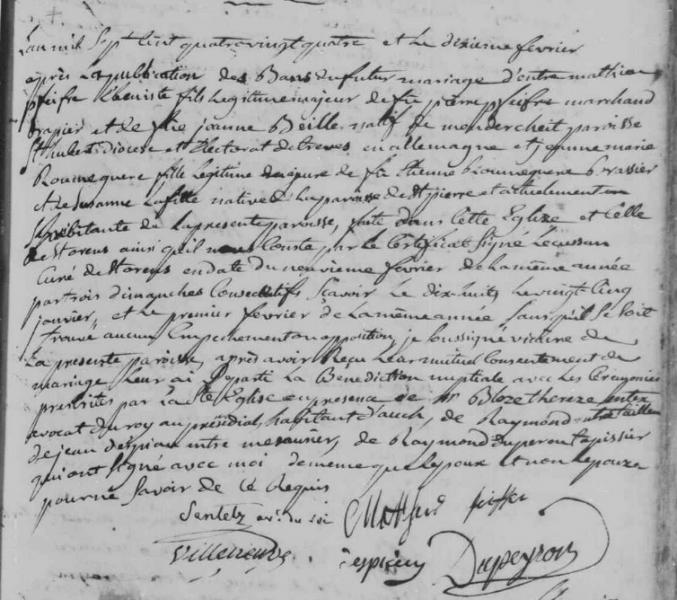 Lan mil Sept Cent quatre vingt quatre et Le dixieme fevrier
après La publication des Bans du futur mariage d'entre mathieu
pfeifre Ebeniste fils Legitime majeur de feu pierre pfeifre marchand
drapier et de feue jeanne Beille natif de mandercheit paroisse
St hubert Diocese et Electorat de treves en allemagne et jeanne marie
Roumeguere fille Legitime majeure de feu Etienne Roumeguere Brassier
et de Suzanne Lafitte native de La paroisse de St pierre et actuellement
habitante de La presente paroisse, faite dans Cette Eglize et Celle
de Storens ainsi qu'il nous Conste par Le Certificat Signé Lecussan
Curé de Storens en date du neuvieme fevrier de La même année
par trois dimanches Consecutifs Sçavoir Le dix huit, Le vingt Cinq
janvier, et Le premier fevrier de La même année Sans qu'il Se Soit
trouvé aucun Empechement ou opposition, je Soussigné vicaire de
La presente paroisse, après avoir Reçu Leur mutuel Consentement de
mariage Leur ai Departi La Benediction nuptiale avec Les Ceremonies
prescrites par La Ste Eglise en presence de Mr Blaze therèze
avocat du roy au présidial, habitants d'auch, de Raymond
de jean Despiau entre menuisier, de Raymond Duperon tapissier
qui ont Signé avec moi de meme que L'epoux Et non L'epouze
pour ne Savoir de Ce Requis
Sentetz av. du roi Matthieu
Villeneuve Despiau Dupeyron